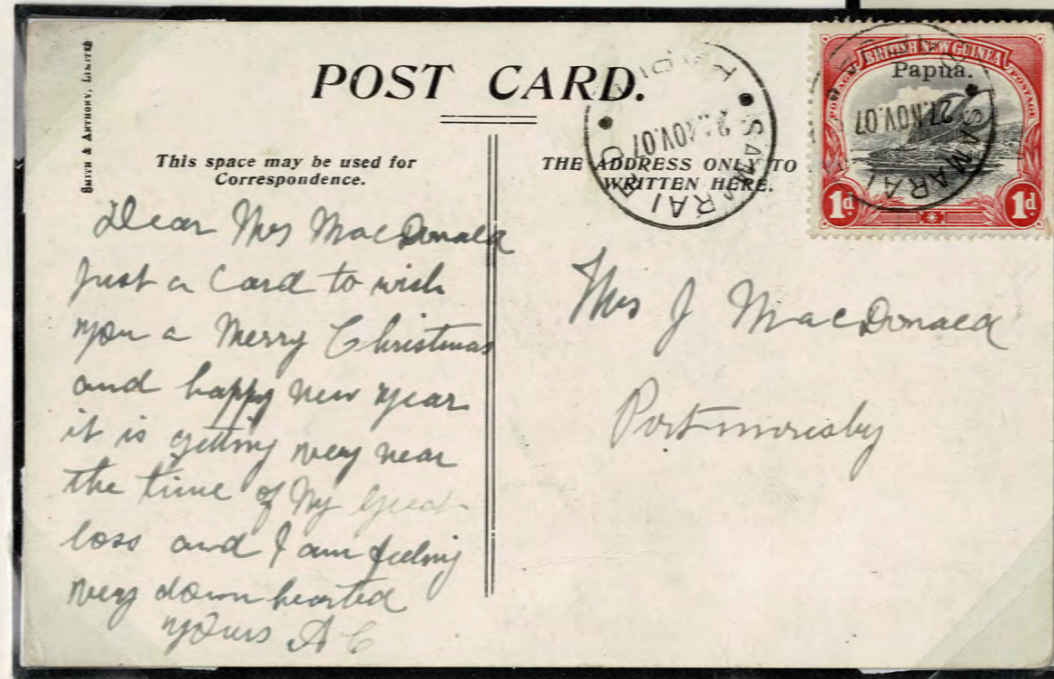 SMITH & ANTHONY, LIMITED
POST CARD.
This space may be used for
Correspondence.
THE ADDRESS ONLY TO
WRITTEN HERE.
SAMARAI
27.NOV.07
BRITISH NEW GUINEA
Papua.
POSTAGE
POSTAGE
1d
1d
SAMARAI
27.NOV.07
Dear Mrs MacDonald
Just a Card to wish
you a Merry Christmas
and happy new year
it is getting very near
the time of My great
loss and I am feeling
very down hearted
yours A C
Mrs J MacDonald
Portmoresby